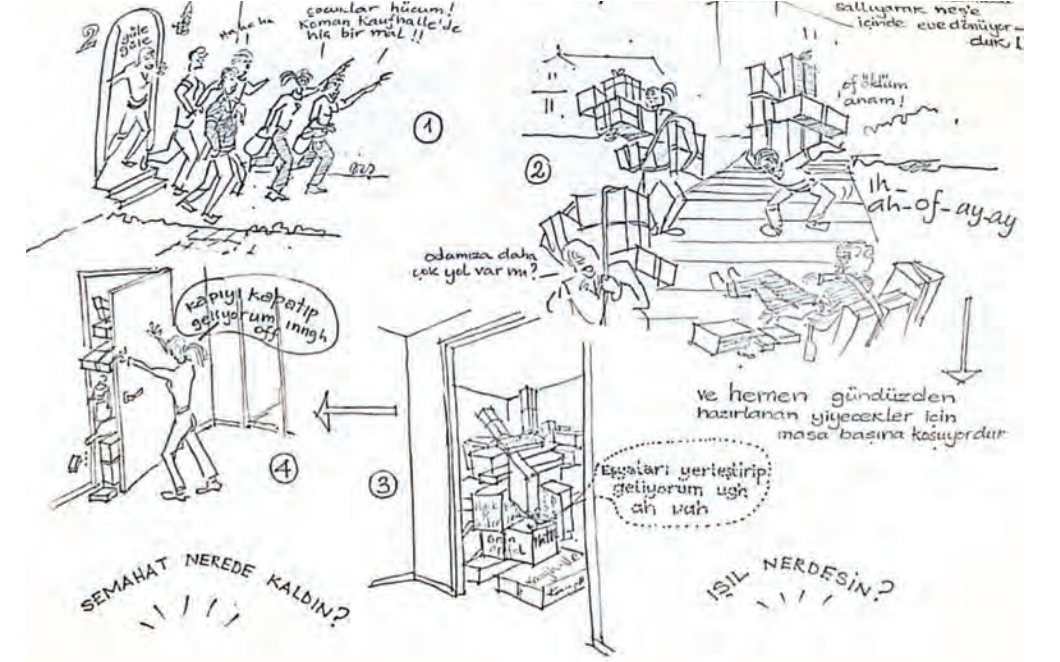 2
güle
güle
Ha ha ha
çocuklar hücum!
Koman Kaufhalle'de
hiç bir mal!!
1
sallıyarak neş'e
içinde eve dönüyor-
duk
of öldüm
anam!
2
ıh-
ah-of-ay-ay
odamıza daha
çok yol var mı?
ve hemen gündüzden
hazırlanan yiyecekler için
masa başına koşuyorduk
Eşyaları yerleştirip
geliyorum ugh
ah vah
3
kapıyı kapatıp
geliyorum inngh
off
4
SEMAHAT NEREDE KALDIN?
IŞIL NERDESİN?